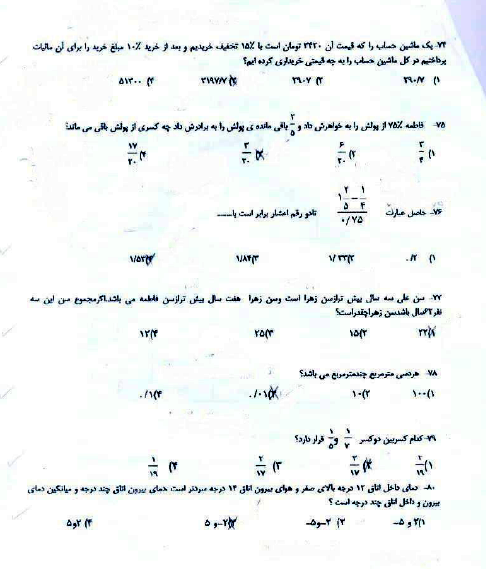 ۷۴- یک ماشین حساب را که قیمت آن ۳۴۲۰ تومان است با ۱۵٪ تخفیف خریدیم و بعد از خرید ۱۰٪ مبلغ خرید را برای آن مالیات
پرداختیم در کل ماشین حساب را به چه قیمتی خریداری کرده ایم؟
۱) ۲۹۰/۷ ۲) ۲۹۰۷ ۳) ۳۱۹۷/۷ ۴) ۵۱۳۰۰
۷۵- فاطمه ۷۵٪ از پولش را به خواهرش داد و ۲/۵ باقی مانده ی پولش را به برادرش داد چه کسری از پولش باقی می ماند؟
۱) ۳/۴ ۲) ۶/۲۰ ۳) ۳/۲۰ ۴) ۱۷/۲۰
۷۶- حاصل عبارت (۱ ۲/۵ − ۱/۴)/۰/۷۵ تادو رقم اعشار برابر است با......
۱) ۰/۲ ۲) ۱/۳۳ ۳) ۱/۸۴ ۴) ۱/۵۳
۷۷- سن علی سه سال بیش ترازسن زهرا است وسن زهرا هفت سال بیش ترازسن فاطمه می باشد.اگرمجموع سن این سه
نفر ۶۲سال باشدسن زهراچقدراست؟
۱) ۲۲ ۲) ۱۵ ۳) ۲۵ ۴) ۱۲
۷۸- هردسی مترمربع چندمترمربع می باشد؟
۱) ۱۰۰ ۲) ۱۰ ۳) ۰/۰۱ ۴) ۰/۱
۷۹- کدام کسربین دوکسر ۱/۷ و ۱/۵ قرار دارد؟
۱) ۲/۱ ۲) ۳/۱۷ ۳) ۲/۱۷ ۴) ۱/۱۹
۸۰- دمای داخل اتاق ۱۲ درجه بالای صفر و هوای بیرون اتاق ۱۴ درجه سردتر است دمای بیرون اتاق چند درجه و میانگین دمای
بیرون و داخل اتاق چند درجه است ؟
۱) ۲ و ۵- ۲) ۲-و۵- ۳) ۲-و ۵ ۴) ۲و۵